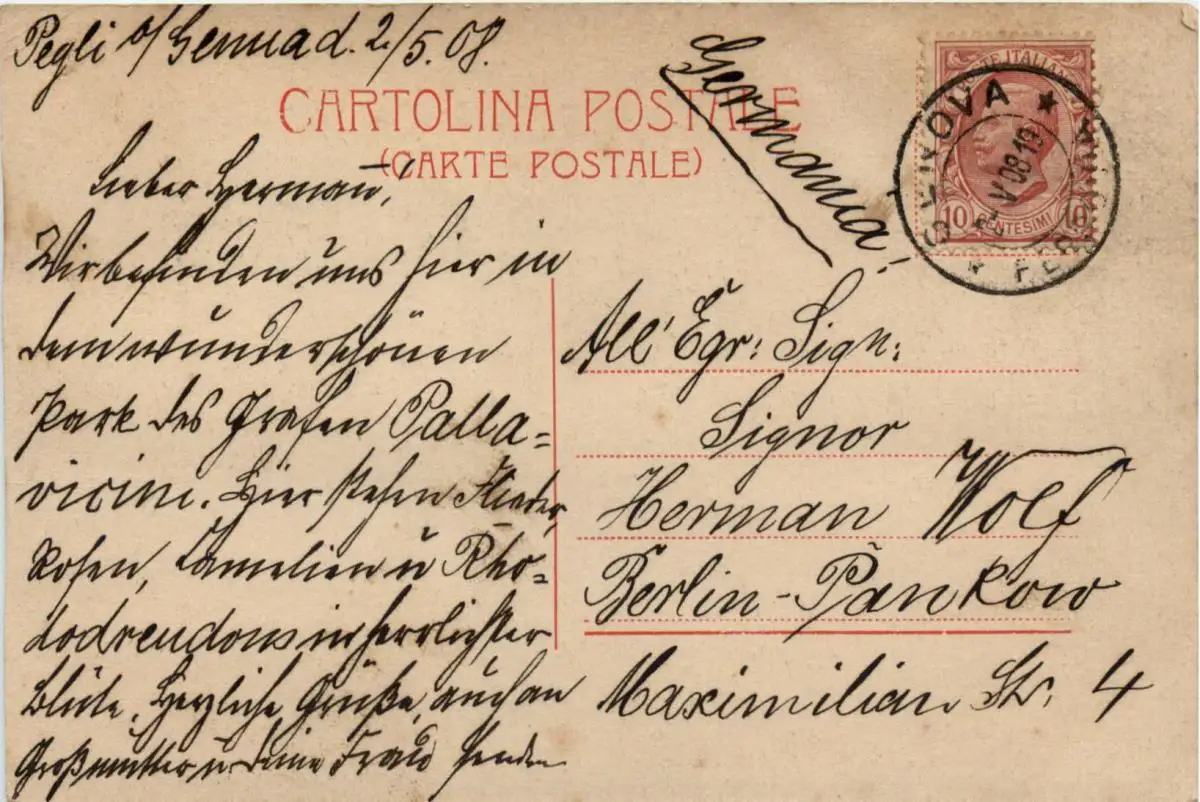 Pegli b/ Genua d. 2/5.08.
CARTOLINA POSTALE
(CARTE POSTALE)
Germania
POSTE ITALIANE
10 CENTESIMI 10
GENOVA
V 08 19
FERROVIA
Lieber Herman!
Wir befinden uns hier in
dem wunderschönen
Park des Grafen Palla=
vicini. Hier stehen Flieder,
Rosen, Camelien u Rho=
dodrendons in herrlichster
Blüte. Herzliche Grüße, auch an
Großmutter u. Deine Frau senden
All' Egr: Sign:
Signor
Herman Wolf
Berlin-Pankow
Maximilian Str. 4